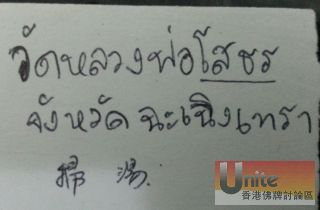 วัดหลวงพ่อโสธร
จังหวัด ฉะเฉิงเทรา
掃 湯.
Unite
香港佛牌討論區